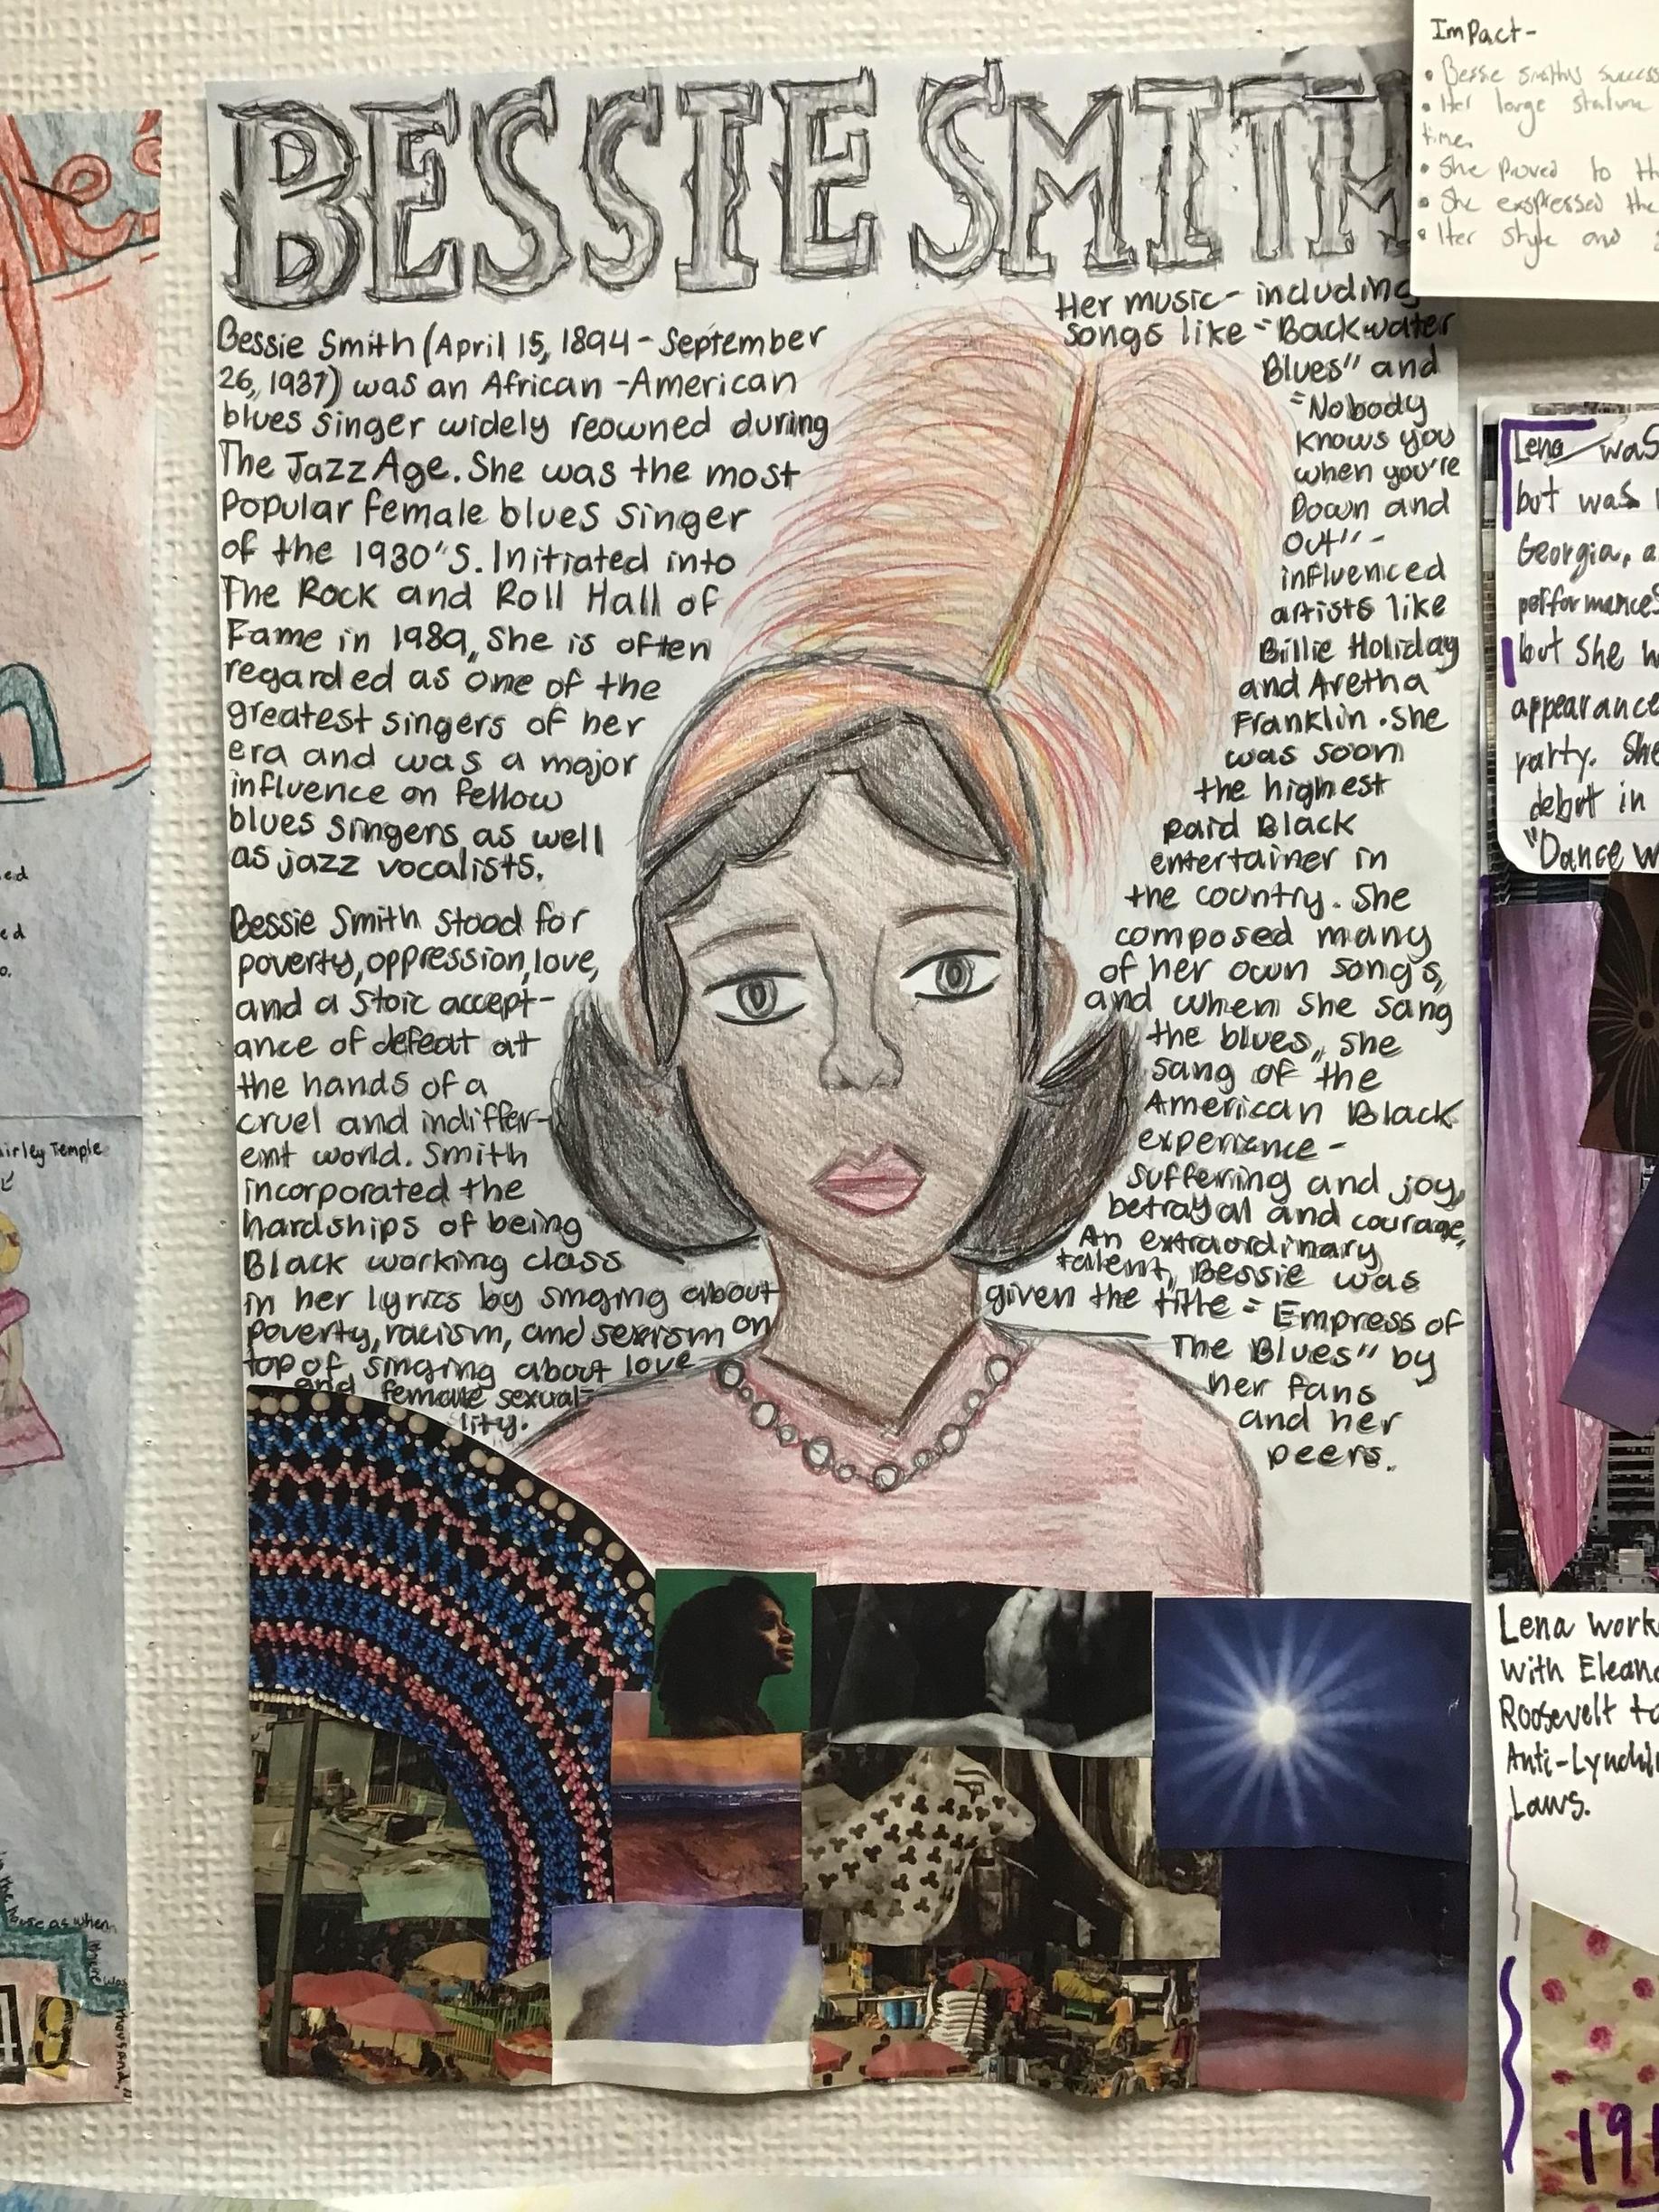 BESSIE SMITH
Bessie Smith (April 15, 1894 - September
26, 1937) was an African -American
blues singer widely reowned during
The Jazz Age. She was the most
Popular female blues singer
of the 1930"S. Initiated into
The Rock and Roll Hall of
Fame in 1989, she is often
regarded as one of the
greatest singers of her
era and was a major
influence on fellow
blues singers, as well
as jazz vocalists.
Bessie Smith stood for
poverty, oppression, love,
and a stoic accept-
ance of defeat at
the hands of a
cruel and indiffer-
ent world. Smith
incorporated the
hardships of being
Black working class
in her lyrics by singing about
poverty, racism, and sexism on
top of singing about love
and female sexual-
ity.
Her music - including
songs like "Backwater
Blues" and
"Nobody
Knows you
when you're
Down and
Out" -
influenced
artists like
Billie Holiday
and Aretha
Franklin. She
was soon
the highest
paid Black
entertainer in
the country. She
composed many
of her own songs,
and when she sang
the blues, she
sang of the
American Black
experience -
suffering and joy,
betrayal and courage,
An extraordinary
talent, Bessie was
given the title "Empress of
The Blues" by
her fans
and her
peers.
Impact-
• Bessie smith's success
• Her large stature
time.
• She Proved to th
• She exspressed the
• Her style and
Lena was
but was
Georgia, a
performances
but She w
appearance
party. She
debut in
"Dance w
Lena work
with Elean
Roosevelt to
Anti-Lynchi
Laws.
191
irley Temple
ed
ed
o.
house as when
was
thousand"
48